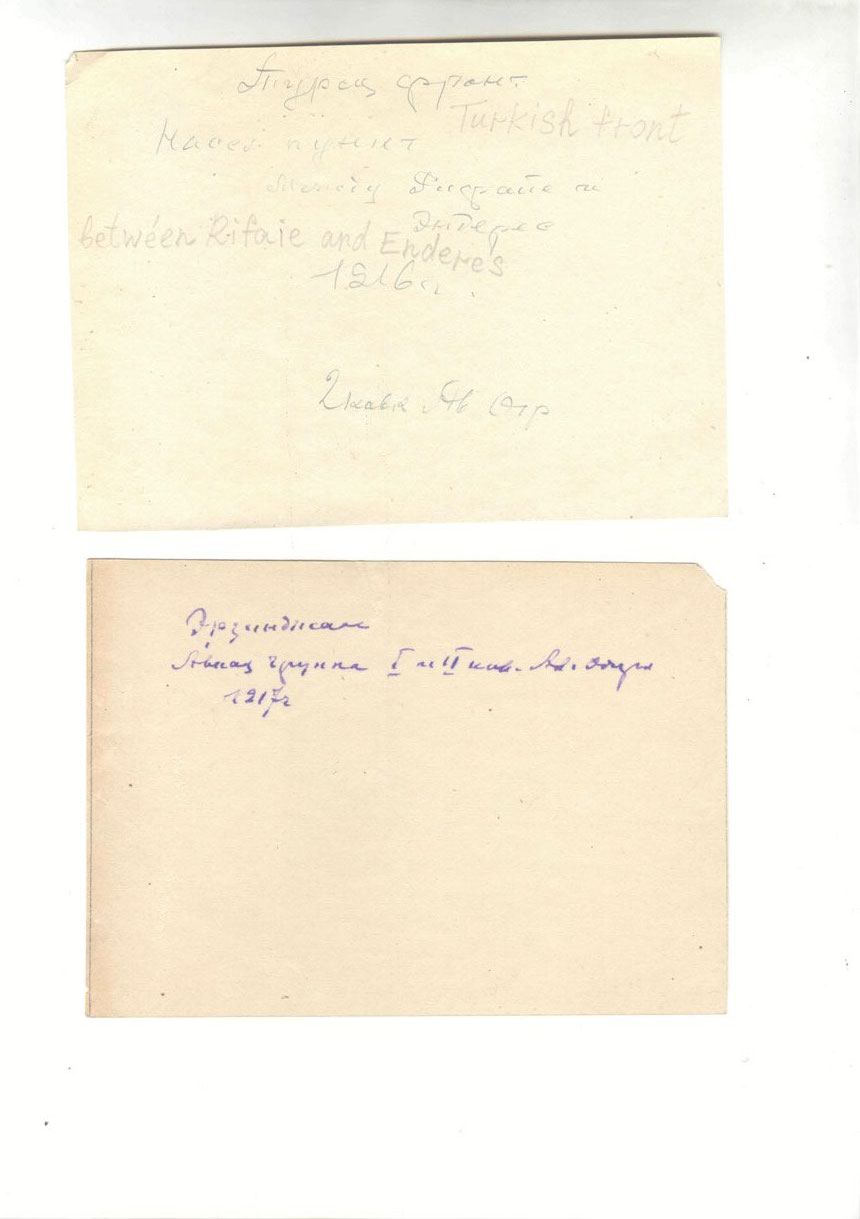 Турец фронт
Turkish front
Насел пункт
между Рифайе и
Эндерес
between Rifaie and Enderes
1916 г.
2 кавк Ав Отр
Эрзинджан
Авиац группа I и II кав. Ав. отр
1917 г